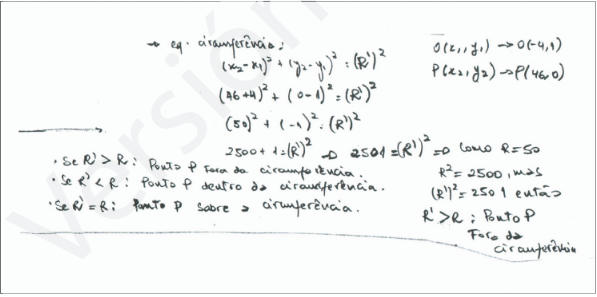 → eq. circunferência:
(x₂-x₁)² + (y₂-y₁)² = (R')²
(46+4)² + (0-1)² = (R')²
(50)² + (-1)² = (R')²
2500 + 1 = (R')² ⇒ 2501 = (R')² ⇒ Como R=50
R² = 2500, mas
(R')² = 2501 então
R' > R ; Ponto P
Fora da
circunferência
O(x₁, y₁) → O(-4,1)
P(x₂, y₂) → P(46,0)
• Se R' > R : Ponto P Fora da circunferência.
• Se R' < R : Ponto P dentro da circunferência.
• Se R' = R : Ponto P sobre a circunferência.
Versión